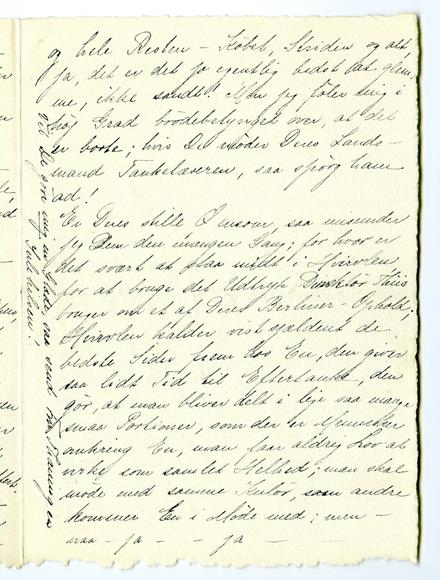 og hele Resten – Købet, Striden og alt,
ja, det er det jo egentlig bedst at glem-
me, ikke sandt! Men jeg føler mig i
høj Grad brødebetynget over, at det
er borte; hvis De møder Deres Lands-
mand Tankelæseren, saa spørg ham
ad!
Er Deres stille Ø ensom, saa misunder
jeg Dem den mangen Gang; for hvor er
det svært at staa midt i Hvirvlen
for at bruge det Udtryk Direktør Thiis
bruger om et af Deres Berliner-Ophold;
Hvirvlen kalder vist sjældent de
bedste Sider frem hos En, den giver
saa lidt Tid til Eftertanke, den
gør, at man bliver delt i lige saa mange
smaa Portioner, som der er Mennesker
omkring En, man faar aldrig Lov at
virke som samlet Helhed; man skal
møde med samme Kulør, som andre
kommer En i Møde med; men –
naa – ja – – ja – –
Vil De gøre mig en Glæde, saa send en
Julehilsen!